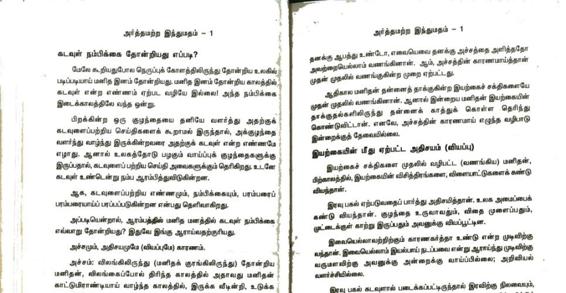 அர்த்தமற்ற இந்துமதம் – 1
கடவுள் நம்பிக்கை தோன்றியது எப்படி?
மேலே கூறியதுபோல நெருப்புக் கோளத்திலிருந்து தோன்றிய உலகில்
படிப்படியாய் மனித இனம் தோன்றியது. மனித இனம் தோன்றிய காலத்தில்
கடவுள் என்ற எண்ணம் ஏற்பட வழியே இல்லை! அந்த நம்பிக்கை
இடைக்காலத்திலே வந்த ஒன்று.
பிறக்கின்ற ஒரு குழந்தையை தனியே வளர்த்து அதற்குக்
கடவுளைப்பற்றிய செய்திகளைக் கூறாமல் இருந்தால், அக்குழந்தை
வளர்ந்து வாழ்ந்து இறக்கின்றவரை அதற்குக் கடவுள் என்ற எண்ணமே
எழாது. ஆனால் உலகத்தோடு பழகும் வாய்ப்புக் குழந்தைகளுக்கு
இருப்பதால், கடவுளைப் பற்றிய செய்தி அவைகளுக்கும் தெரிகிறது. உடனே
கடவுள் உண்டென்று நம்ப ஆரம்பித்துவிடுகின்றன.
ஆக, கடவுளைப்பற்றிய எண்ணமும், நம்பிக்கையும், பரம்பரைப்
பரம்பரையாய்ப் பரப்பப்படுகின்றன என்பது தெளிவாகிறது.
அப்படியென்றால், ஆரம்பத்தில் மனித மனத்தில் கடவுள் நம்பிக்கை
எவ்வாறு தோன்றியது? இதுவே இங்கு ஆராய்வதற்குரியது.
அச்சமும், அதிசயமுமே (வியப்புமே) காரணம்.
அச்சம்: விலங்கிலிருந்து (மனிதக் குரங்கிலிருந்து) தோன்றிய
மனிதன், விலங்கைப்போல் திரிந்த காலத்தில் அதாவது மனிதன்
காட்டுமிராண்டியாய் வாழ்ந்த காலத்தில், இருக்க வீடின்றி, உடுக்க
அர்த்தமற்ற இந்துமதம் – 1
தனக்கு ஆபத்து உண்டோ, எவையெவை தனக்கு அச்சத்தை அளித்ததோ
அவற்றையெல்லாம் வணங்கினான். ஆம், அச்சத்தின் காரணமாய்த்தான்
முதன் முதலில் வணங்குகின்ற முறை ஏற்பட்டது.
ஆதிகால மனிதன் தன்னைத் தாக்குகின்ற இயற்கைச் சக்திகளையே
முதன் முதலில் வணங்கினான். ஆனால் இன்றைய மனிதன் இயற்கையின்
தாக்குதல்களிலிருந்து தன்னைக் காத்துக் கொள்ள தெரிந்து
கொண்டுவிட்டான். எனவே, அச்சத்தின் காரணமாய் எழுந்த வழிபாடு
இன்றைக்குத் தேவையில்லை.
இயற்கையின் மீது ஏற்பட்ட அதிசயம் (வியப்பு)
இயற்கைச் சக்திகளை முதலில் வழிபட்ட (வணங்கிய) மனிதன்,
பிற்காலத்தில், இயற்கையின் விசித்திரங்களை, விளையாட்டுகளைக் கண்டு
வியந்தான்.
இரவு பகல் ஏற்படுவதைப் பார்த்து அதிசயித்தான். உலக அமைப்பைக்
கண்டு வியந்தான். குழந்தை உருவாவதும், விதை முளைப்பதும்,
முட்டைக்குள் காற்று இருப்பதும் அவனுக்கு வியப்பூட்டின.
இவையெல்லாவற்றிற்கும் காரணகர்த்தா உண்டு என்ற முடிவிற்கு
வந்தான். இவையெல்லாம் இயல்பாய் நடப்பவை என்று ஆராய்ந்து முடிவிற்கு
வருமளவிற்கு அவனுக்கு அன்றைக்கு வாய்ப்பில்லை; அறிவியல்
வளர்ச்சியில்லை.
இரவு பகல் கடவுளால் படைக்கப்பட்டிருந்தால் இரவிற்கு நிலவையும்,